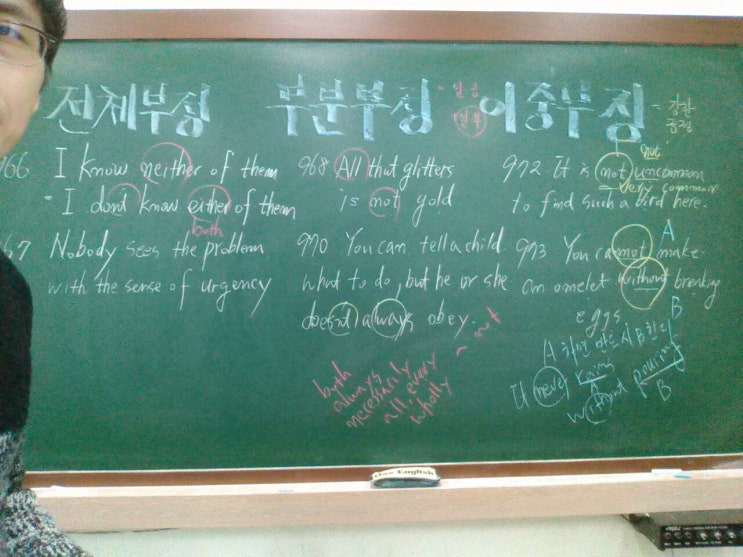 전체부정
966 I know neither of them
- I don't know either of them
both
967 Nobody sees the problem
with the sense of urgency
부분부정
968 All that glitters
is not gold
970 You can tell a child
what to do, but he or she
doesn't always obey.
both
always
necessarily
all, every
wholly
not
이중부정
= 강한
긍정
972 It is not uncommon
not
= very common
to find such a bird here.
A
973 You cannot make
an omelet without breaking
eggs
B
It never rains
without pouring
B
Max English